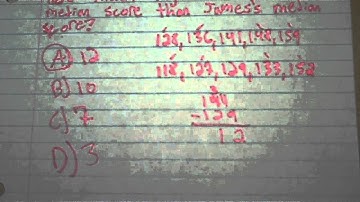 median score than James's median
score?
A) 12
B) 10
C) 7
D) 3
128, 136, 141, 148, 159
118, 129, 129, 133, 152
141
-129
12